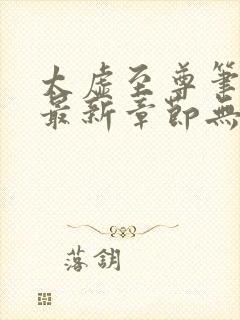 太虚至尊筆
最新章節無
落鈅